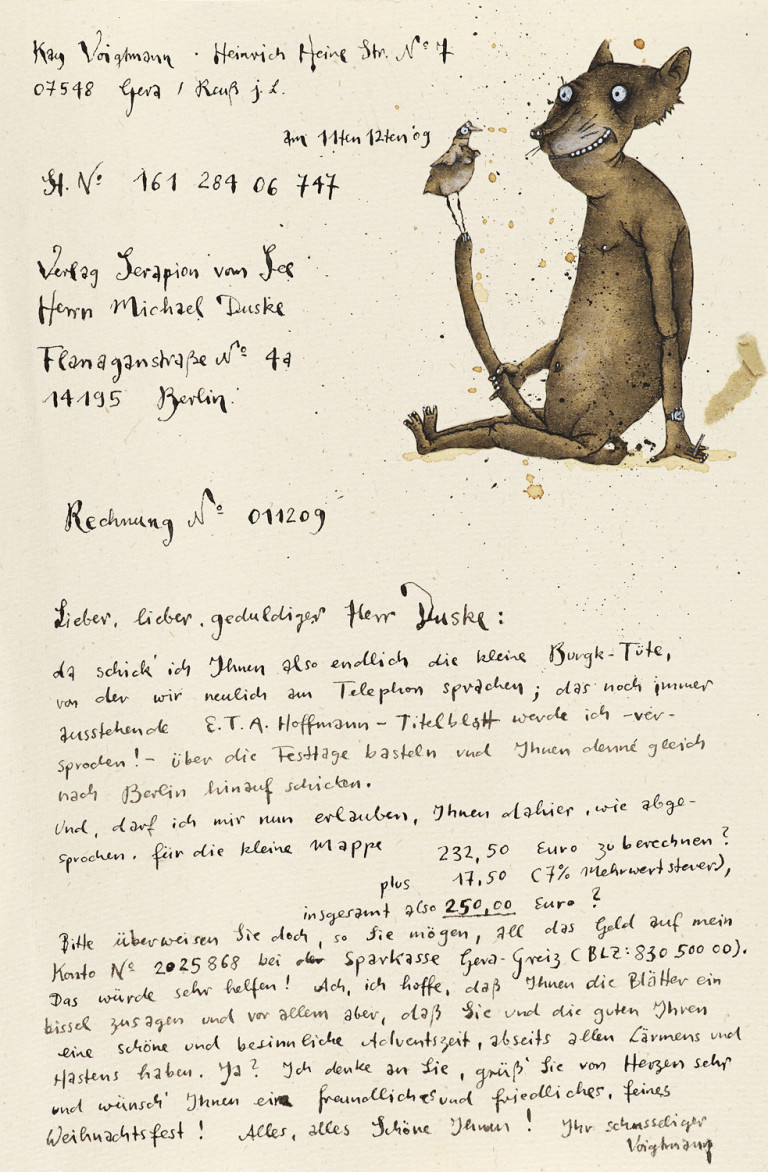 Kay Voigtmann · Heinrich Heine Str. Nº 7
07548 Gera / Reuß j. L.
am 11ten 12ten 09
St. Nº 161 284 06 747
Verlag Serapion vom See
Herrn Michael Duske
Flanaganstraße Nº 4a
14195 Berlin.
Rechnung Nº 011209
Lieber, lieber, geduldiger Herr Duske:
da schick' ich Ihnen also endlich die kleine Burgk-Tüte,
von der wir neulich am Telephon sprachen; das noch immer
ausstehende E.T.A. Hoffmann-Titelblatt werde ich -ver-
sprochen!- über die Festtage basteln und Ihnen denne gleich
nach Berlin hinauf schicken.
Und, darf ich mir nun erlauben, Ihnen dahier, wie abge-
sprochen, für die kleine Mappe 232,50 Euro zu berechnen?
plus 17,50 (7% Mehrwertsteuer),
insgesamt also 250,00 Euro?
Bitte überweisen Sie doch, so Sie mögen, all das Geld auf mein
Konto Nº 2025868 bei der Sparkasse Gera-Greiz (BLZ: 830 500 00).
Das würde sehr helfen! Ach, ich hoffe, daß Ihnen die Blätter ein
bissel zusagen und vor allem aber, daß Sie und die guten Ihren
eine schöne und besinnliche Adventszeit, abseits allen Lärmens und
Hastens haben. Ja? Ich denke an Sie, grüß' Sie von Herzen sehr
und wünsch' Ihnen ein freundliches und friedliches, feines
Weihnachtsfest! Alles, alles Schöne Ihnen! Ihr schusseliger
Voigtmann